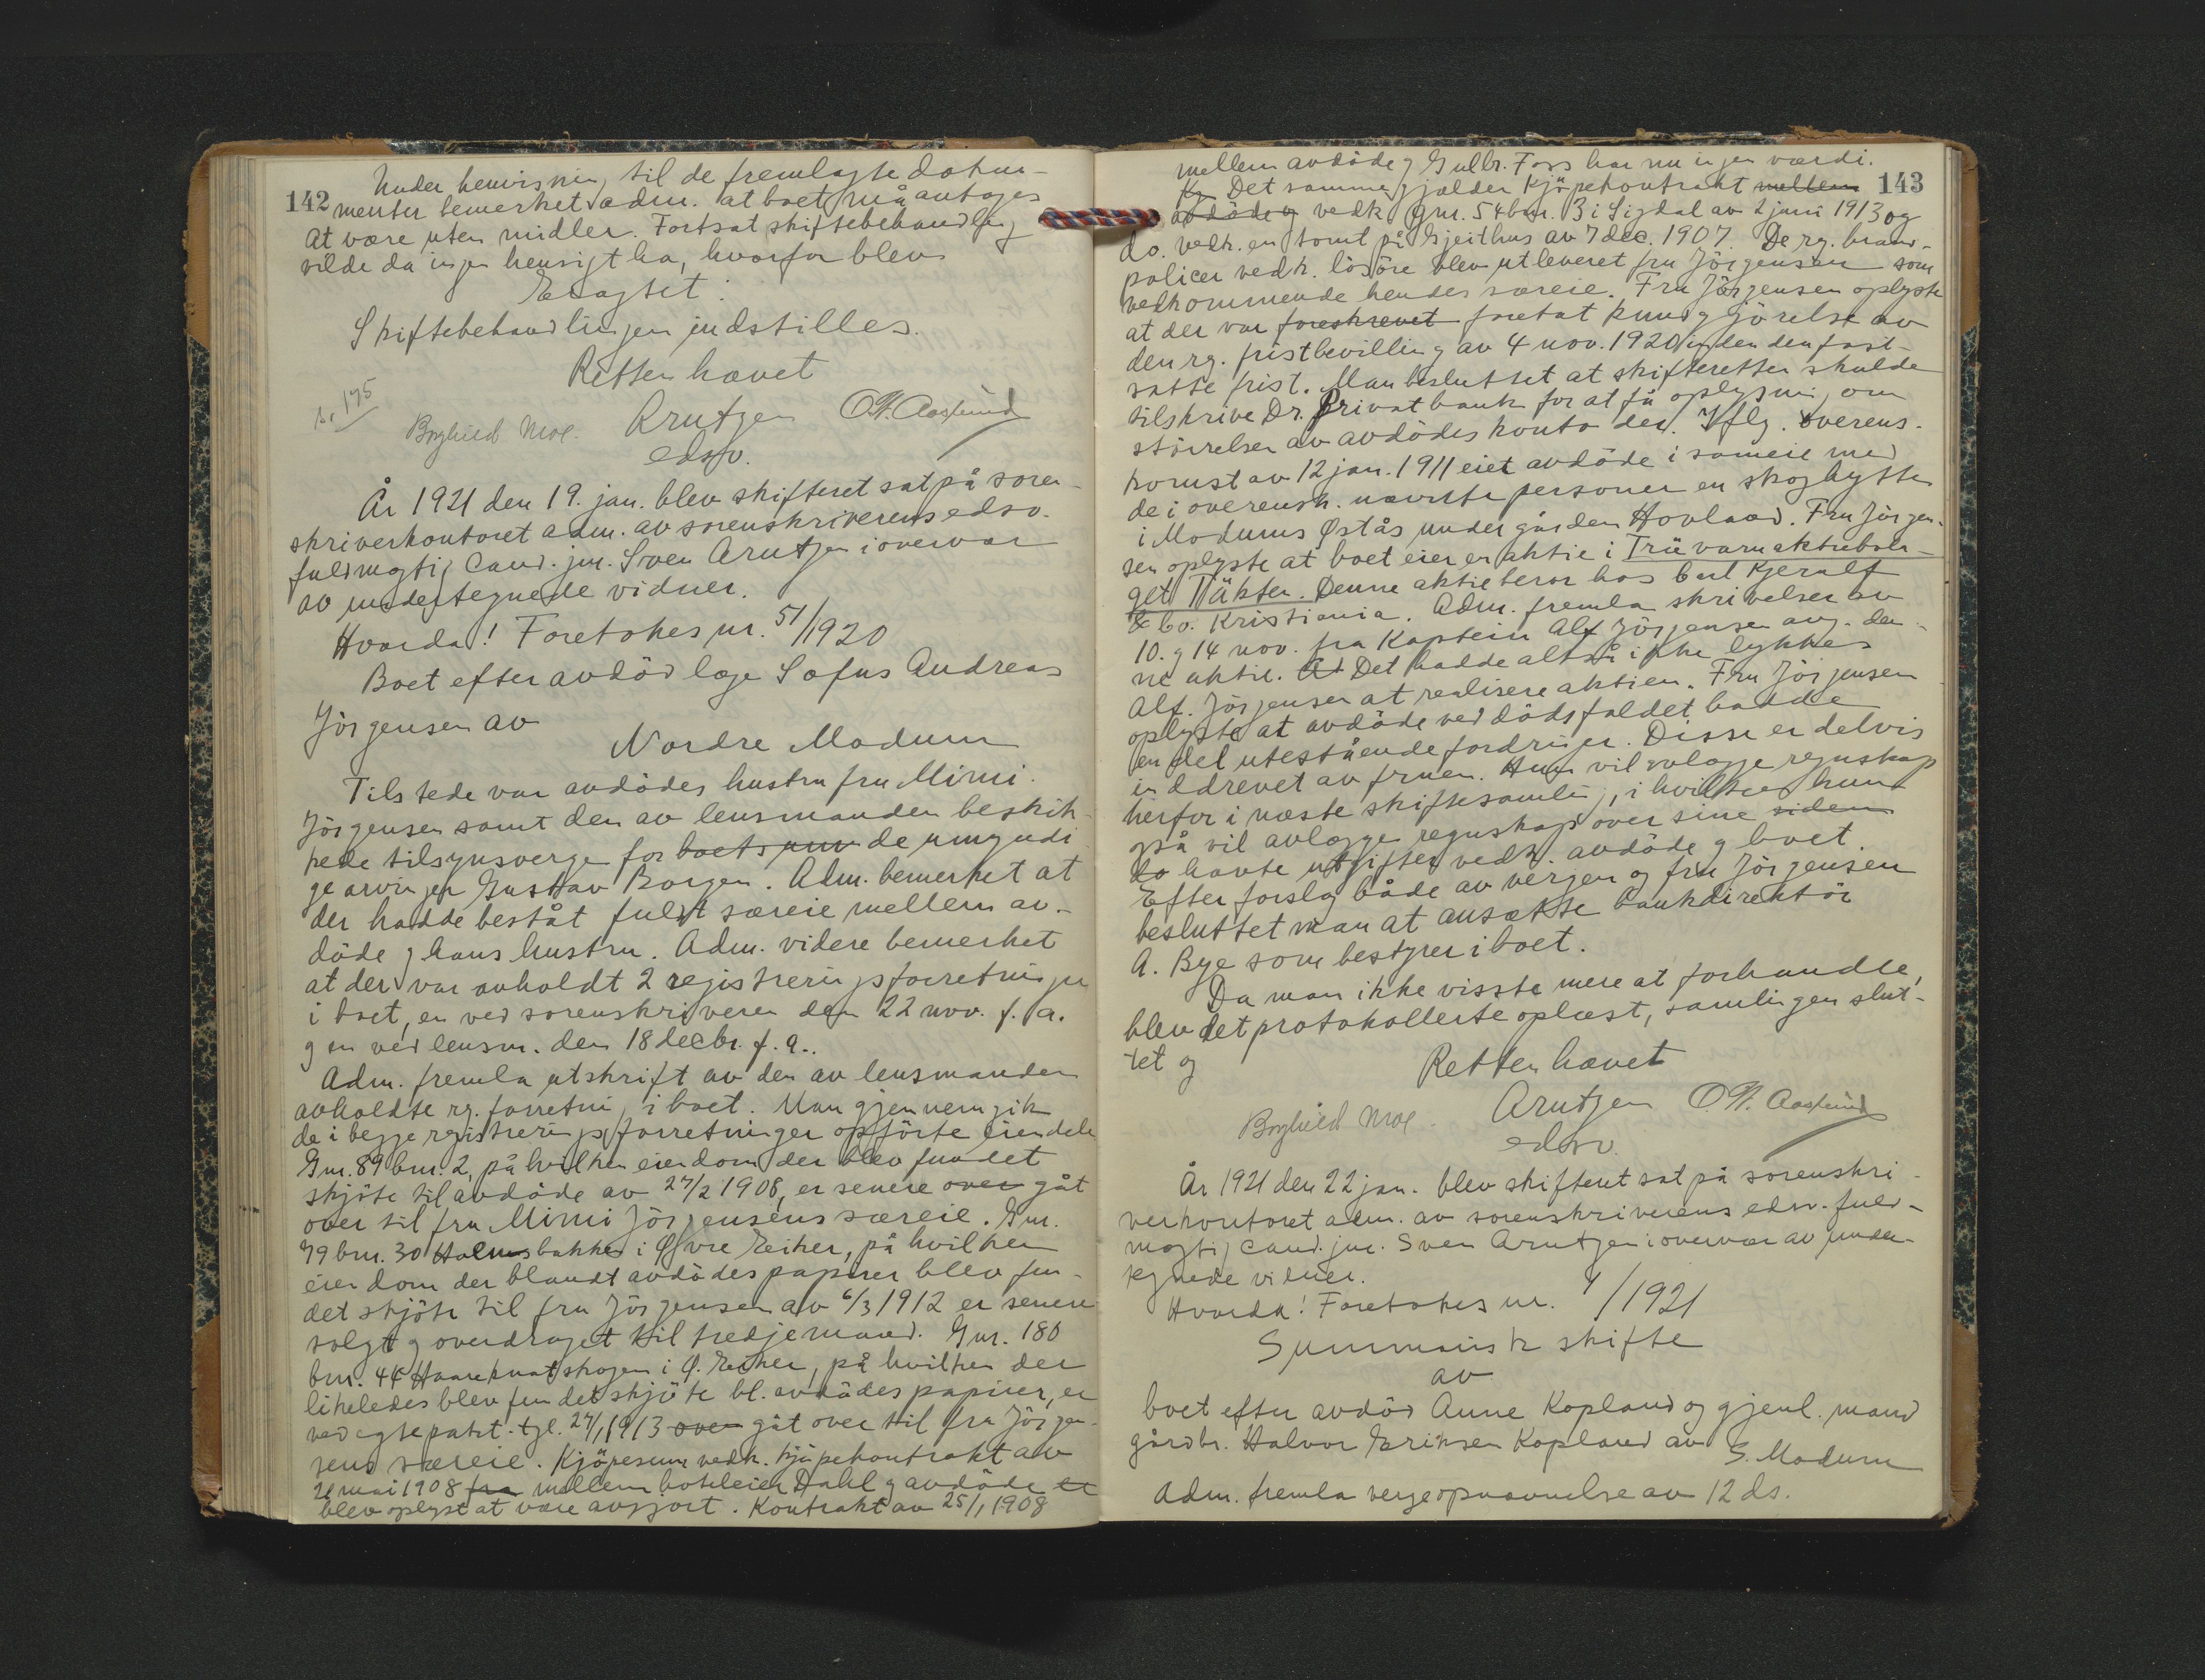 142
Under henvisning til de fremlagte doku-
menter bemerket adm. at boet må antages
at være uten midler. Fortsat skiftebehandling
vilde da ingen hensigt ha, hvorfor blev
Eragtet:
Skiftebehandlingen indstilles.
Retten hævet
Borghild Moe. Arntzen O.N. Aaslund
edsv.
År 1921 den 19. jan. blev skifteret sat på soren-
skriverkontoret adm. av sorenskriverens edsv.
fuldmægtig cand. jur. Sven Arntzen i overvær
av undertegnede vidner.
Hvorda! Foretokes nr. 51/1920
Boet efter avdöd læge Sofus Andreas
Jörgensen av
Nordre Modum
Tilstede var avdödes hustru fru Mimi
Jörgensen samt den av lensmanden beskik-
kede tilsynsverge for boets umy de umyndi
ge arvinger Gustav Borgen. Adm. bemerket at
der hadde beståt fuldt særeie mellem av-
döde g hans hustru. Adm. videre bemerket
at der var avholdt 2 registreringsforretninger
i boet, en ved sorenskriveren den 22 nov. f. a.
g en ved lensm. den 18 decbr. f. a..
Adm. fremla utskrift av den av lensmanden
avholdte rg. forretning i boet. Man gjennemgik
de i begge registreringsforretninger opförte eiendele
Gnr. 89 bnr. 2, på hvilken eiendom der blev fundet
skjöte til avdöde av 27/2 1908, er senere over gåt
over til fru Mimi Jörgensens særeie. Gnr.
79 bnr. 30 Holmsbakken i Øvre Eiker, på hvilken
eiendom der blandt avdödes papirer blev fun-
det skjöte til fru Jörgensen av 6/3 1912 er senere
solgt g overdraget til tredjemand. Gnr. 180
bnr. 44 Haareknatskogen i Ø. Eiker, på hvilken der
likeledes blev fundet skjöte bl. avdödes papirer, er
ved egtepakt. tgl. 27/1 1913 over gåt over til fru Jörgen-
sens særeie. Kjöpesum vedk. kjöpekontrakt av
21 mai 1908 fra mellem hoteleier Dahl g avdöde er
blev oplyst at være avgjort. Kontrakt av 25/1 1908
143
mellem avdöde g Gulbr. Foss har nu ingen værdi.
Kj Det samme gjælder kjöpekontrakt mellem
avdöde og vedk. gnr. 54 bnr. 3 i Sigdal av 2 juni 1913 og
do. vedk. en tomt på Gjeithus av 7 dec. 1907. De rg. brand-
policer vedk. lösöre blev utleveret fru Jörgensen som
vedkommende hendes særeie. Fru Jörgensen oplyste
at der var foreskrevet foretat kundgjörelse av
den rg. fristbevilling av 4 nov. 1920 inden den fast-
satte frist. Man besluttet at skifteretten skulde
tilskrive Dr. Privatbank for at få oplysning om
störrelsen av avdödes konto der. Iflg. overens-
komst av 12 jan. 1911 eiet avdöde i sameie med
de i overensk. nævnte personer en skoghytte
i Modums Østås under gården Hovland. Fru Jörgen-
sen oplyste at boet eier en aktie i Trävaruaktiebola-
get Täkten. Denne aktie beror hos Carl Kjerulf
& Co. Kristiania. Adm. fremla skrivelser av
10. g 14 nov. fra Kaptein Alf Jörgensen ang. den-
ne aktie. At Det hadde altså ikke lykkes
Alf. Jörgensen at realisere aktien. Fru Jörgensen
oplyste at avdöde ved dödsfaldet hadde
en del utestående fordringer. Disse er delvis
inddrevet av fruen. Hun vil avlægge regnskap
herfor i næste skiftesamling, i hvilken hun
også vil avlægge regnskap over sine siden
da havte utgifter vedk. avdöde g boet.
Efter forslag både av vergen og fru Jörgensen
besluttet man at ansætte bankdirektör
A. Bye som bestyrer i boet.
Da man ikke visste mere at forhandle,
blev det protokollerte oplæst, samlingen slut-
tet og
Retten hævet
Borghild Moe. Arntzen O.N. Aaslund
edsv.
År 1921 den 22 jan. blev skifteret sat på sorenskri-
verkontoret adm. av sorenskriverens edsv. fuld-
mægtig cand. jur. Sven Arntzen i overvær av under-
tegnede vidner.
Hvorda! Foretokes nr. /1921
Summarisk skifte
av
boet efter avdöd Anne Kopland og gjenl. mand
gårdbr. Halvor Eriksen Kopland av S. Modum
Adm. fremla vergeopnævnelse av 12 ds.